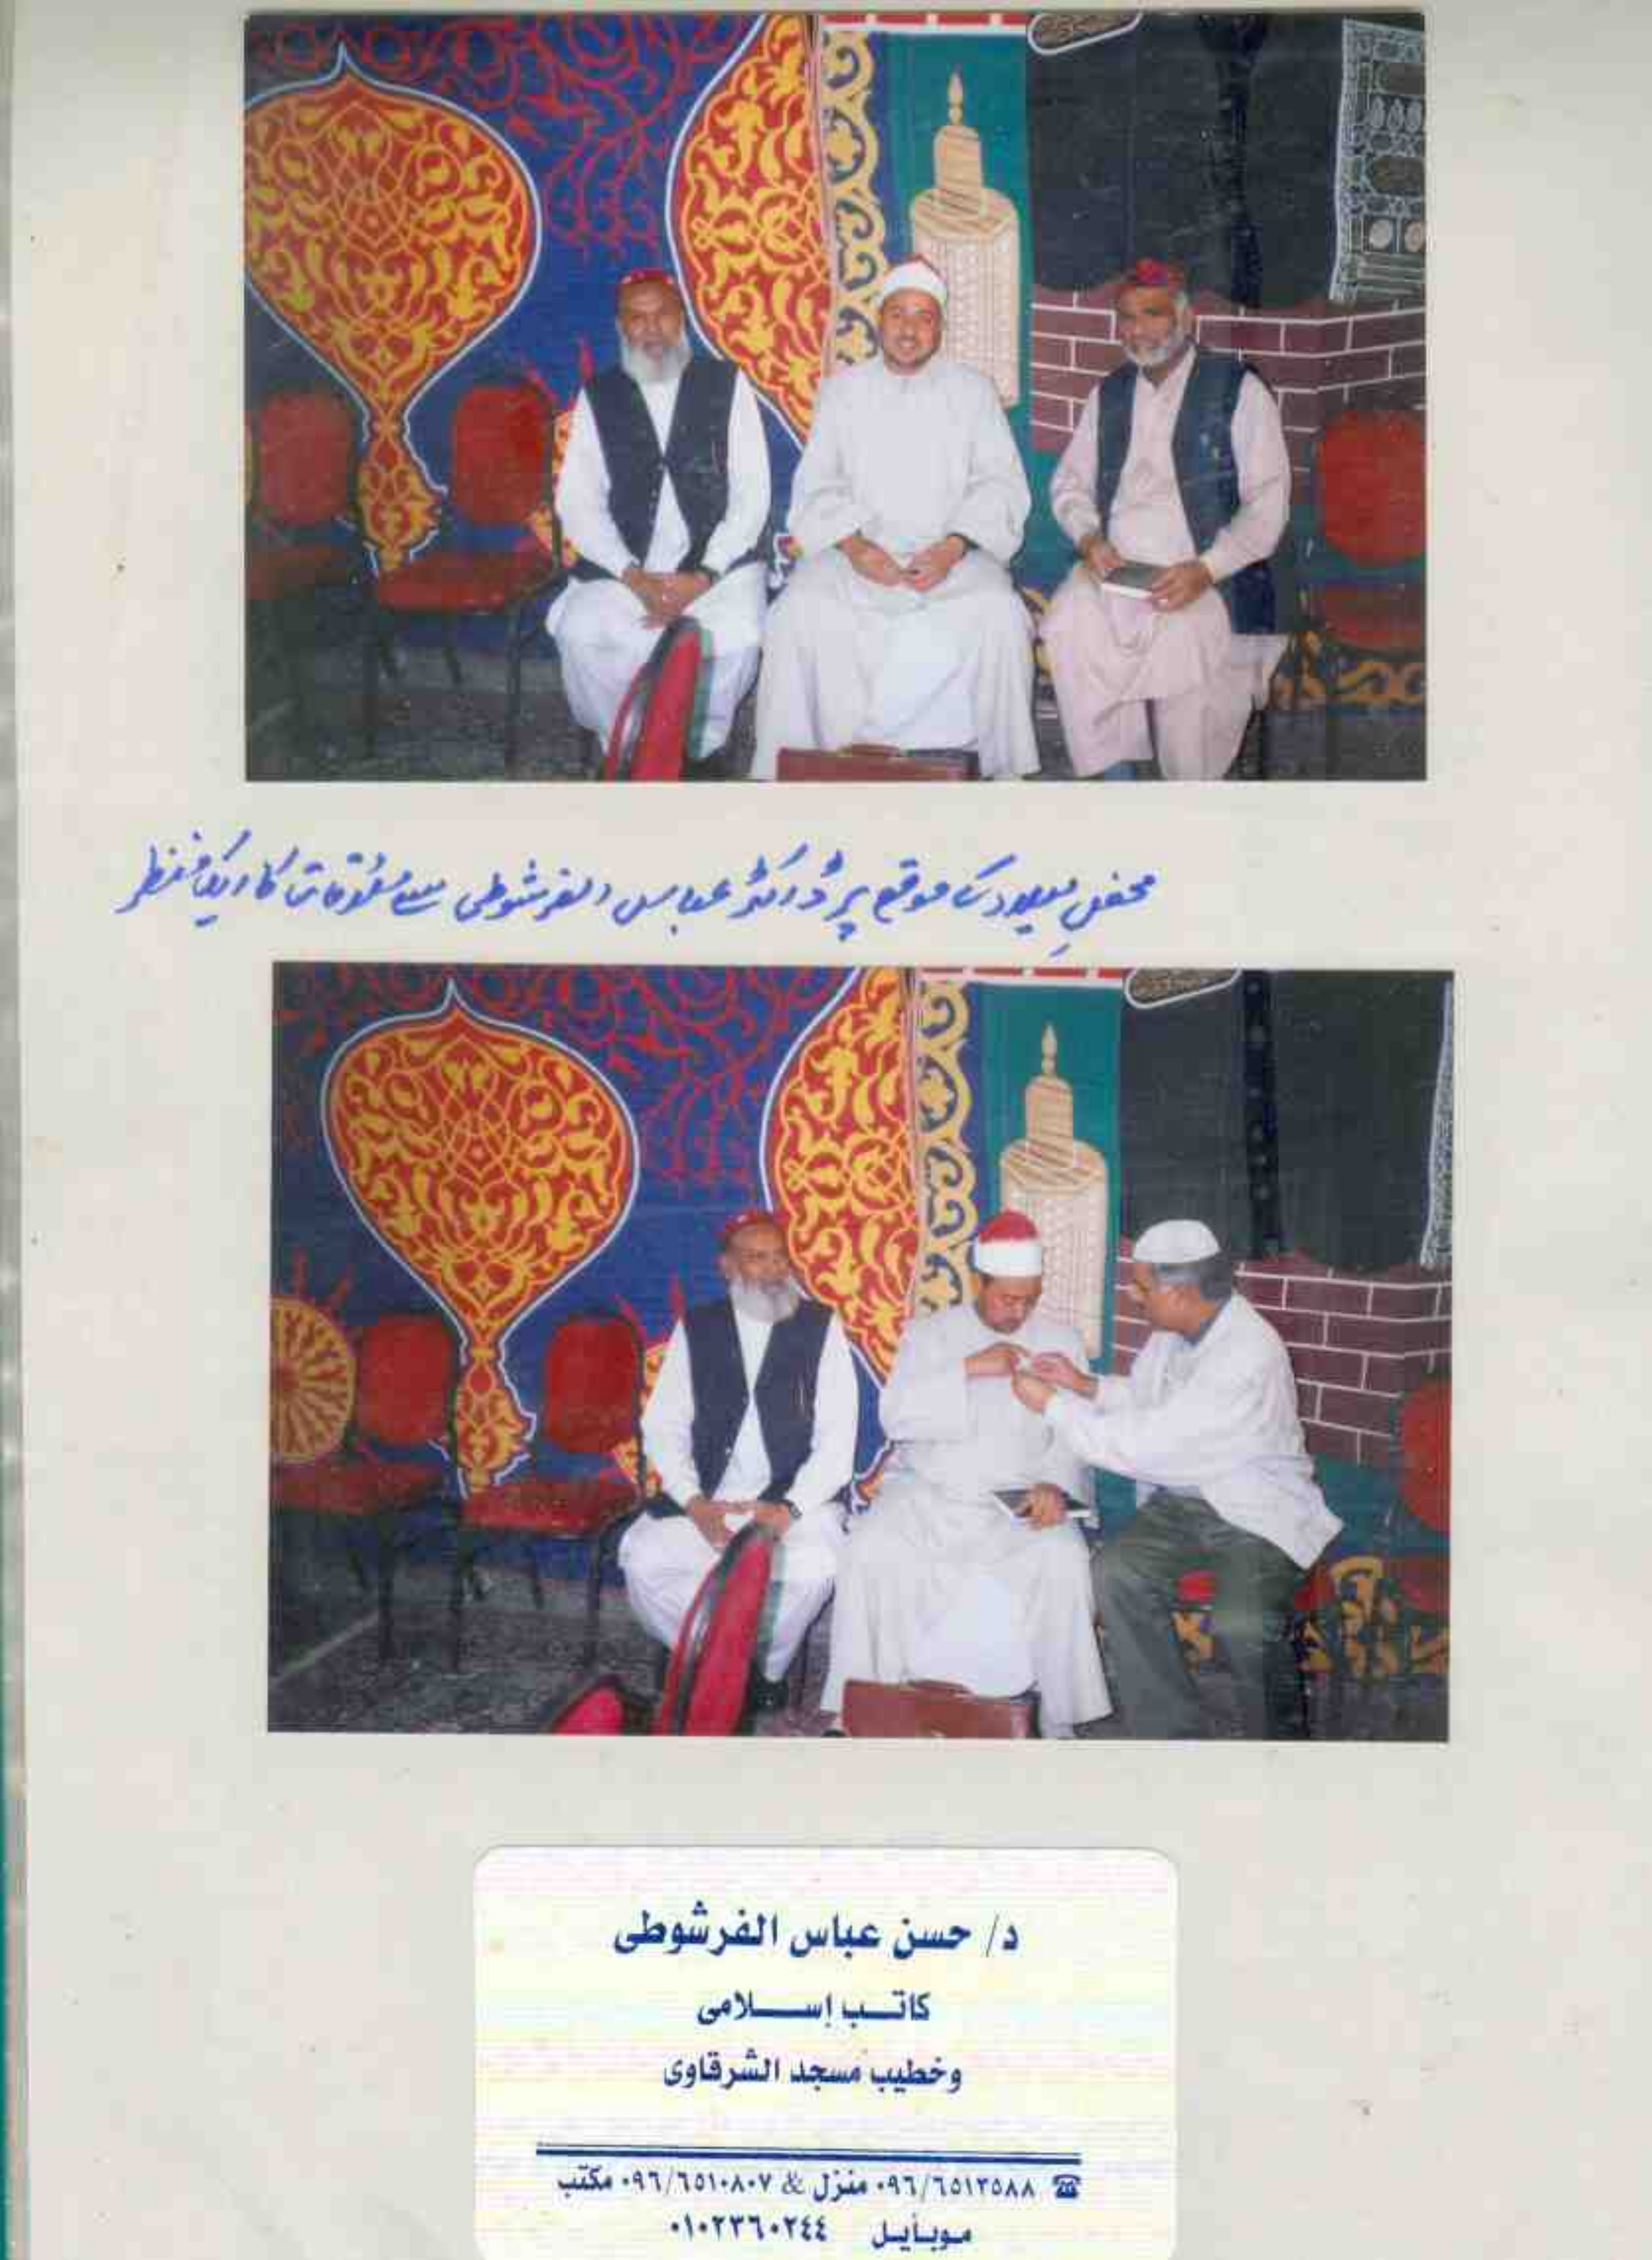 محفلِ میلاد کے موقع پر ڈاکٹر عباس الفرشوطی سے ملاقات کا ایک منظر
د/ حسن عباس الفرشوطى
كاتب إسلامى
وخطيب مسجد الشرقاوى
☎ ٠٩٦/٦٥١٢٥٨٨ منزل & ٠٩٦/٦٥١٠٨٠٧ مكتب
موبايل ٠١٠٢٣٦٠٢٤٤